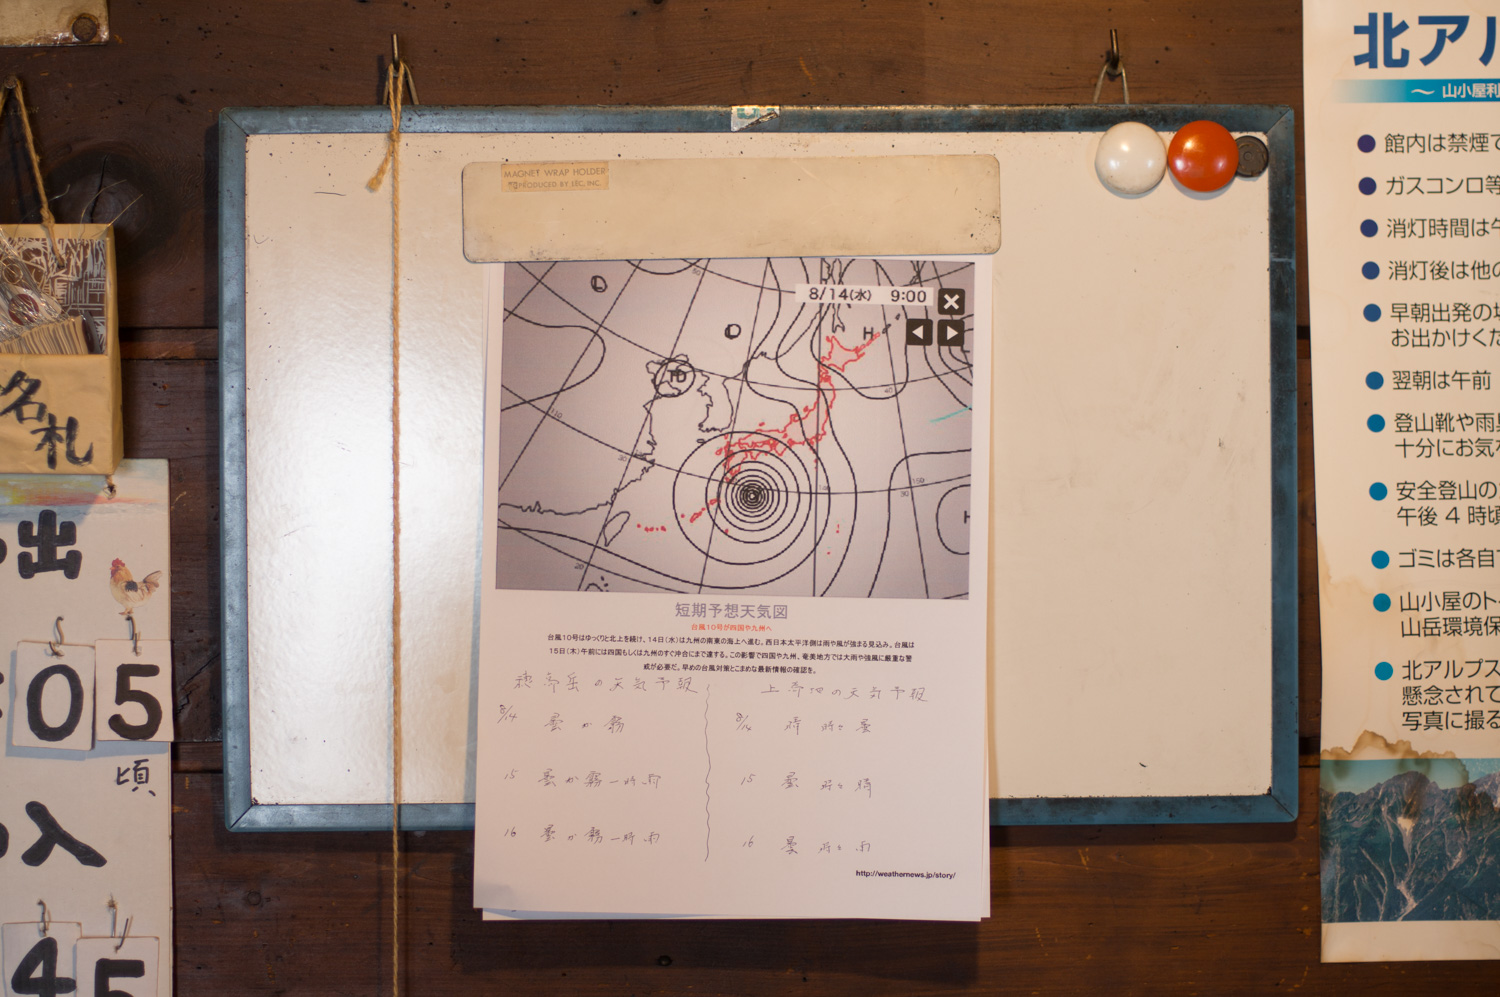 MAGNET WRAP HOLDER
PRODUCED BY LEC, INC.
8/14(水) 9:00
L
H
TD
H
短期予想天気図
台風10号が四国や九州へ
台風10号はゆっくりと北上を続け、14日(水)は九州の南東の海上へ進む。西日本太平洋側は雨や風が強まる見込み。台風は
15日(木)午前には四国もしくは九州のすぐ沖合にまで達する。この影響で四国や九州、奄美地方では大雨や強風に厳重な警
戒が必要だ。早めの台風対策とこまめな最新情報の確認を。
穂高岳の天気予報
8/14 曇か霧
15 曇か霧一時雨
16 曇か霧一時雨
上高地の天気予報
8/14 晴時々曇
15 曇時々晴
16 曇時々雨
http://weathernews.jp/story/
名札
出
05
頃
入
45
北アル
〜 山小屋利
館内は禁煙で
ガスコンロ等
消灯時間は午
消灯後は他の
早朝出発の
お出かけくだ
翌朝は午前
登山靴や雨具
十分にお気
安全登山の
午後 4 時頃
ゴミは各自
山小屋のト
山岳環境保
北アルプス
懸念されて
写真に撮る